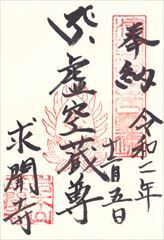 奉納
令和二年
十二月五日
虚空蔵尊
求聞寺